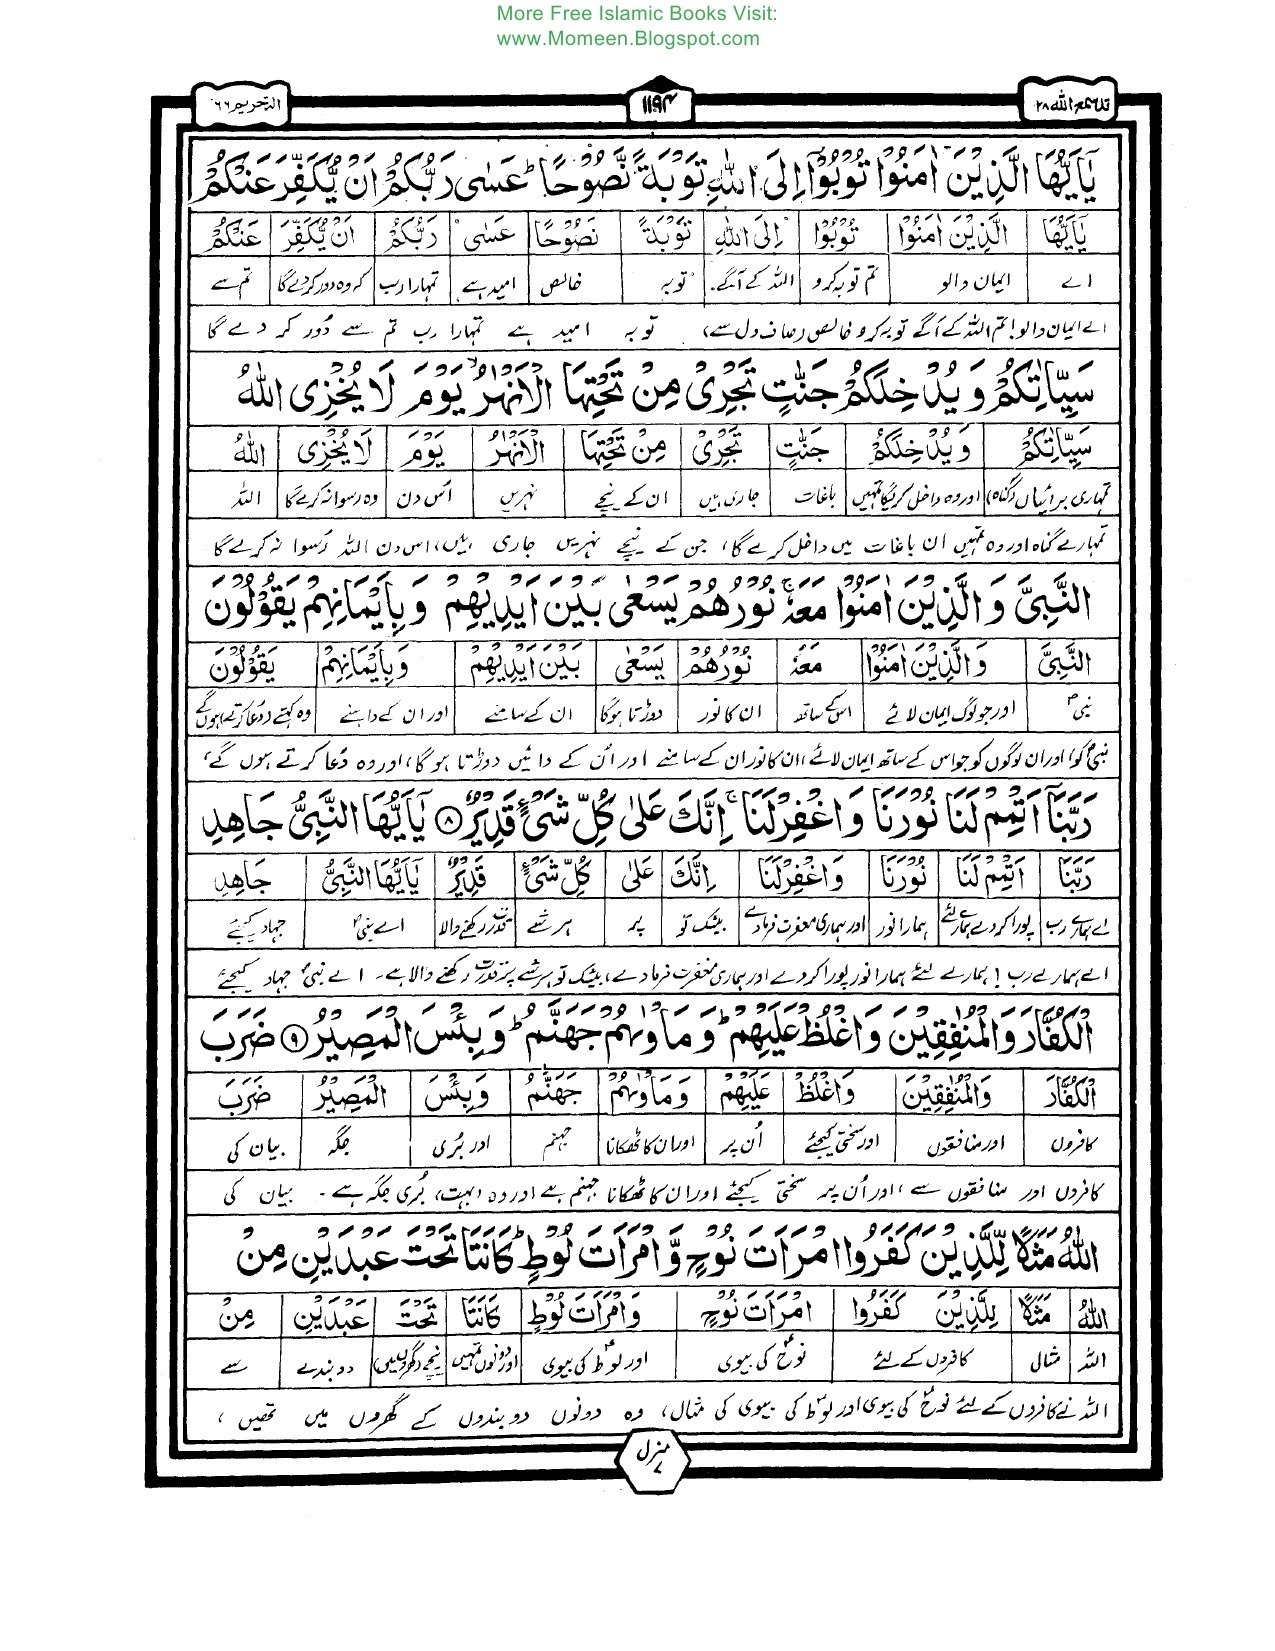 More Free Islamic Books Visit:
www.Momeen.Blogspot.com
قد سمع الله ۲۸
۱۱۹۴
التحریم ۶۶
يٰۤاَيُّهَا الَّذِيْنَ اٰمَنُوْا تُوْبُوْۤا اِلَى اللّٰهِ تَوْبَةً نَّصُوْحًا ؕ عَسٰى رَبُّكُمْ اَنْ يُّكَفِّرَ عَنْكُمْ
يٰۤاَيُّهَا الَّذِيْنَ اٰمَنُوْا تُوْبُوْۤا اِلَى اللّٰهِ تَوْبَةً نَّصُوْحًا عَسٰى رَبُّكُمْ اَنْ يُّكَفِّرَ عَنْكُمْ
اے ایمان والو تم توبہ کرو اللہ کے آگے توبہ خالص امید ہے تمہارا رب کہ وہ دور کردے گا تم سے
اے ایمان والو! تم اللہ کے آگے توبہ کرو خالص (صاف دل سے) توبہ امید ہے تمہارا رب تم سے دُور کر دے گا
سَيِّاٰتِكُمْ وَيُدْخِلَكُمْ جَنّٰتٍ تَجْرِيْ مِنْ تَحْتِهَا الْاَنْهٰرُ ۙ يَوْمَ لَا يُخْزِى اللّٰهُ
سَيِّاٰتِكُمْ وَيُدْخِلَكُمْ جَنّٰتٍ تَجْرِيْ مِنْ تَحْتِهَا الْاَنْهٰرُ يَوْمَ لَا يُخْزِى اللّٰهُ
تمہاری برائیاں (گناہ) اور وہ داخل کریگا تمہیں باغات جاری ہیں ان کے نیچے نہریں اُس دن وہ رسوا نہ کرے گا اللہ
تمہارے گناہ اور وہ تمہیں ان باغات میں داخل کرے گا، جن کے نیچے نہریں جاری ہیں، اس دن اللہ رُسوا نہ کرے گا
النَّبِيَّ وَالَّذِيْنَ اٰمَنُوْا مَعَهٗ ۚ نُوْرُهُمْ يَسْعٰى بَيْنَ اَيْدِيْهِمْ وَبِاَيْمَانِهِمْ يَقُوْلُوْنَ
النَّبِيَّ وَالَّذِيْنَ اٰمَنُوْا مَعَهٗ نُوْرُهُمْ يَسْعٰى بَيْنَ اَيْدِيْهِمْ وَبِاَيْمَانِهِمْ يَقُوْلُوْنَ
نبیؐ اور جو لوگ ایمان لائے اس کے ساتھ ان کا نور دوڑتا ہوگا ان کے سامنے اور ان کے داہنے وہ کہتے (دعا کرتے) ہوں گے
نبیؐ کو اور ان لوگوں کو جو اس کے ساتھ ایمان لائے، ان کا نور ان کے سامنے اور اُن کے دائیں دوڑتا ہوگا، اور وہ دُعا کرتے ہوں گے،
رَبَّنَاۤ اَتْمِمْ لَنَا نُوْرَنَا وَاغْفِرْ لَنَا ۚ اِنَّكَ عَلٰى كُلِّ شَيْءٍ قَدِيْرٌ ۸ يٰۤاَيُّهَا النَّبِيُّ جَاهِدِ
رَبَّنَا اَتْمِمْ لَنَا نُوْرَنَا وَاغْفِرْ لَنَا اِنَّكَ عَلٰى كُلِّ شَيْءٍ قَدِيْرٌ يٰۤاَيُّهَا النَّبِيُّ جَاهِدِ
اے ہمارے رب پورا کردے ہمارے لئے ہمارا نور اور ہماری مغفرت فرمادے بیشک تو پر ہر شے قدرت رکھنے والا اے نبیؐ جہاد کیجئے
اے ہمارے رب! ہمارے لئے ہمارا نور پورا کردے اور ہماری مغفرت فرمادے، بیشک تو ہر شے پر قدرت رکھنے والا ہے۔ اے نبیؐ جہاد کیجئے
الْكُفَّارَ وَالْمُنٰفِقِيْنَ وَاغْلُظْ عَلَيْهِمْ ؕ وَمَاْوٰىهُمْ جَهَنَّمُ ؕ وَبِئْسَ الْمَصِيْرُ ۹ ضَرَبَ
الْكُفَّارَ وَالْمُنٰفِقِيْنَ وَاغْلُظْ عَلَيْهِمْ وَمَاْوٰىهُمْ جَهَنَّمُ وَبِئْسَ الْمَصِيْرُ ضَرَبَ
کافروں اور منافقوں اور سختی کیجئے اُن پر اور ان کا ٹھکانا جہنم اور بُری جگہ بیان کی
کافروں اور منافقوں سے، اور اُن پر سختی کیجئے اور ان کا ٹھکانا جہنم ہے اور وہ (بہت) بُری جگہ ہے۔ بیان کی
اللّٰهُ مَثَلًا لِّلَّذِيْنَ كَفَرُوا امْرَاَتَ نُوْحٍ وَّامْرَاَتَ لُوْطٍ ؕ كَانَتَا تَحْتَ عَبْدَيْنِ مِنْ
اللّٰهُ مَثَلًا لِلَّذِيْنَ كَفَرُوا امْرَاَتَ نُوْحٍ وَامْرَاَتَ لُوْطٍ كَانَتَا تَحْتَ عَبْدَيْنِ مِنْ
اللہ مثال کافروں کے لئے نوحؑ کی بیوی اور لوطؑ کی بیوی اور دونوں تھیں نیچے (گھر میں) دو بندے سے
اللہ نے کافروں کے لئے نوحؑ کی بیوی اور لوطؑ کی بیوی کی مثال، وہ دونوں دو بندوں کے گھروں میں تھیں،
منزل ۷